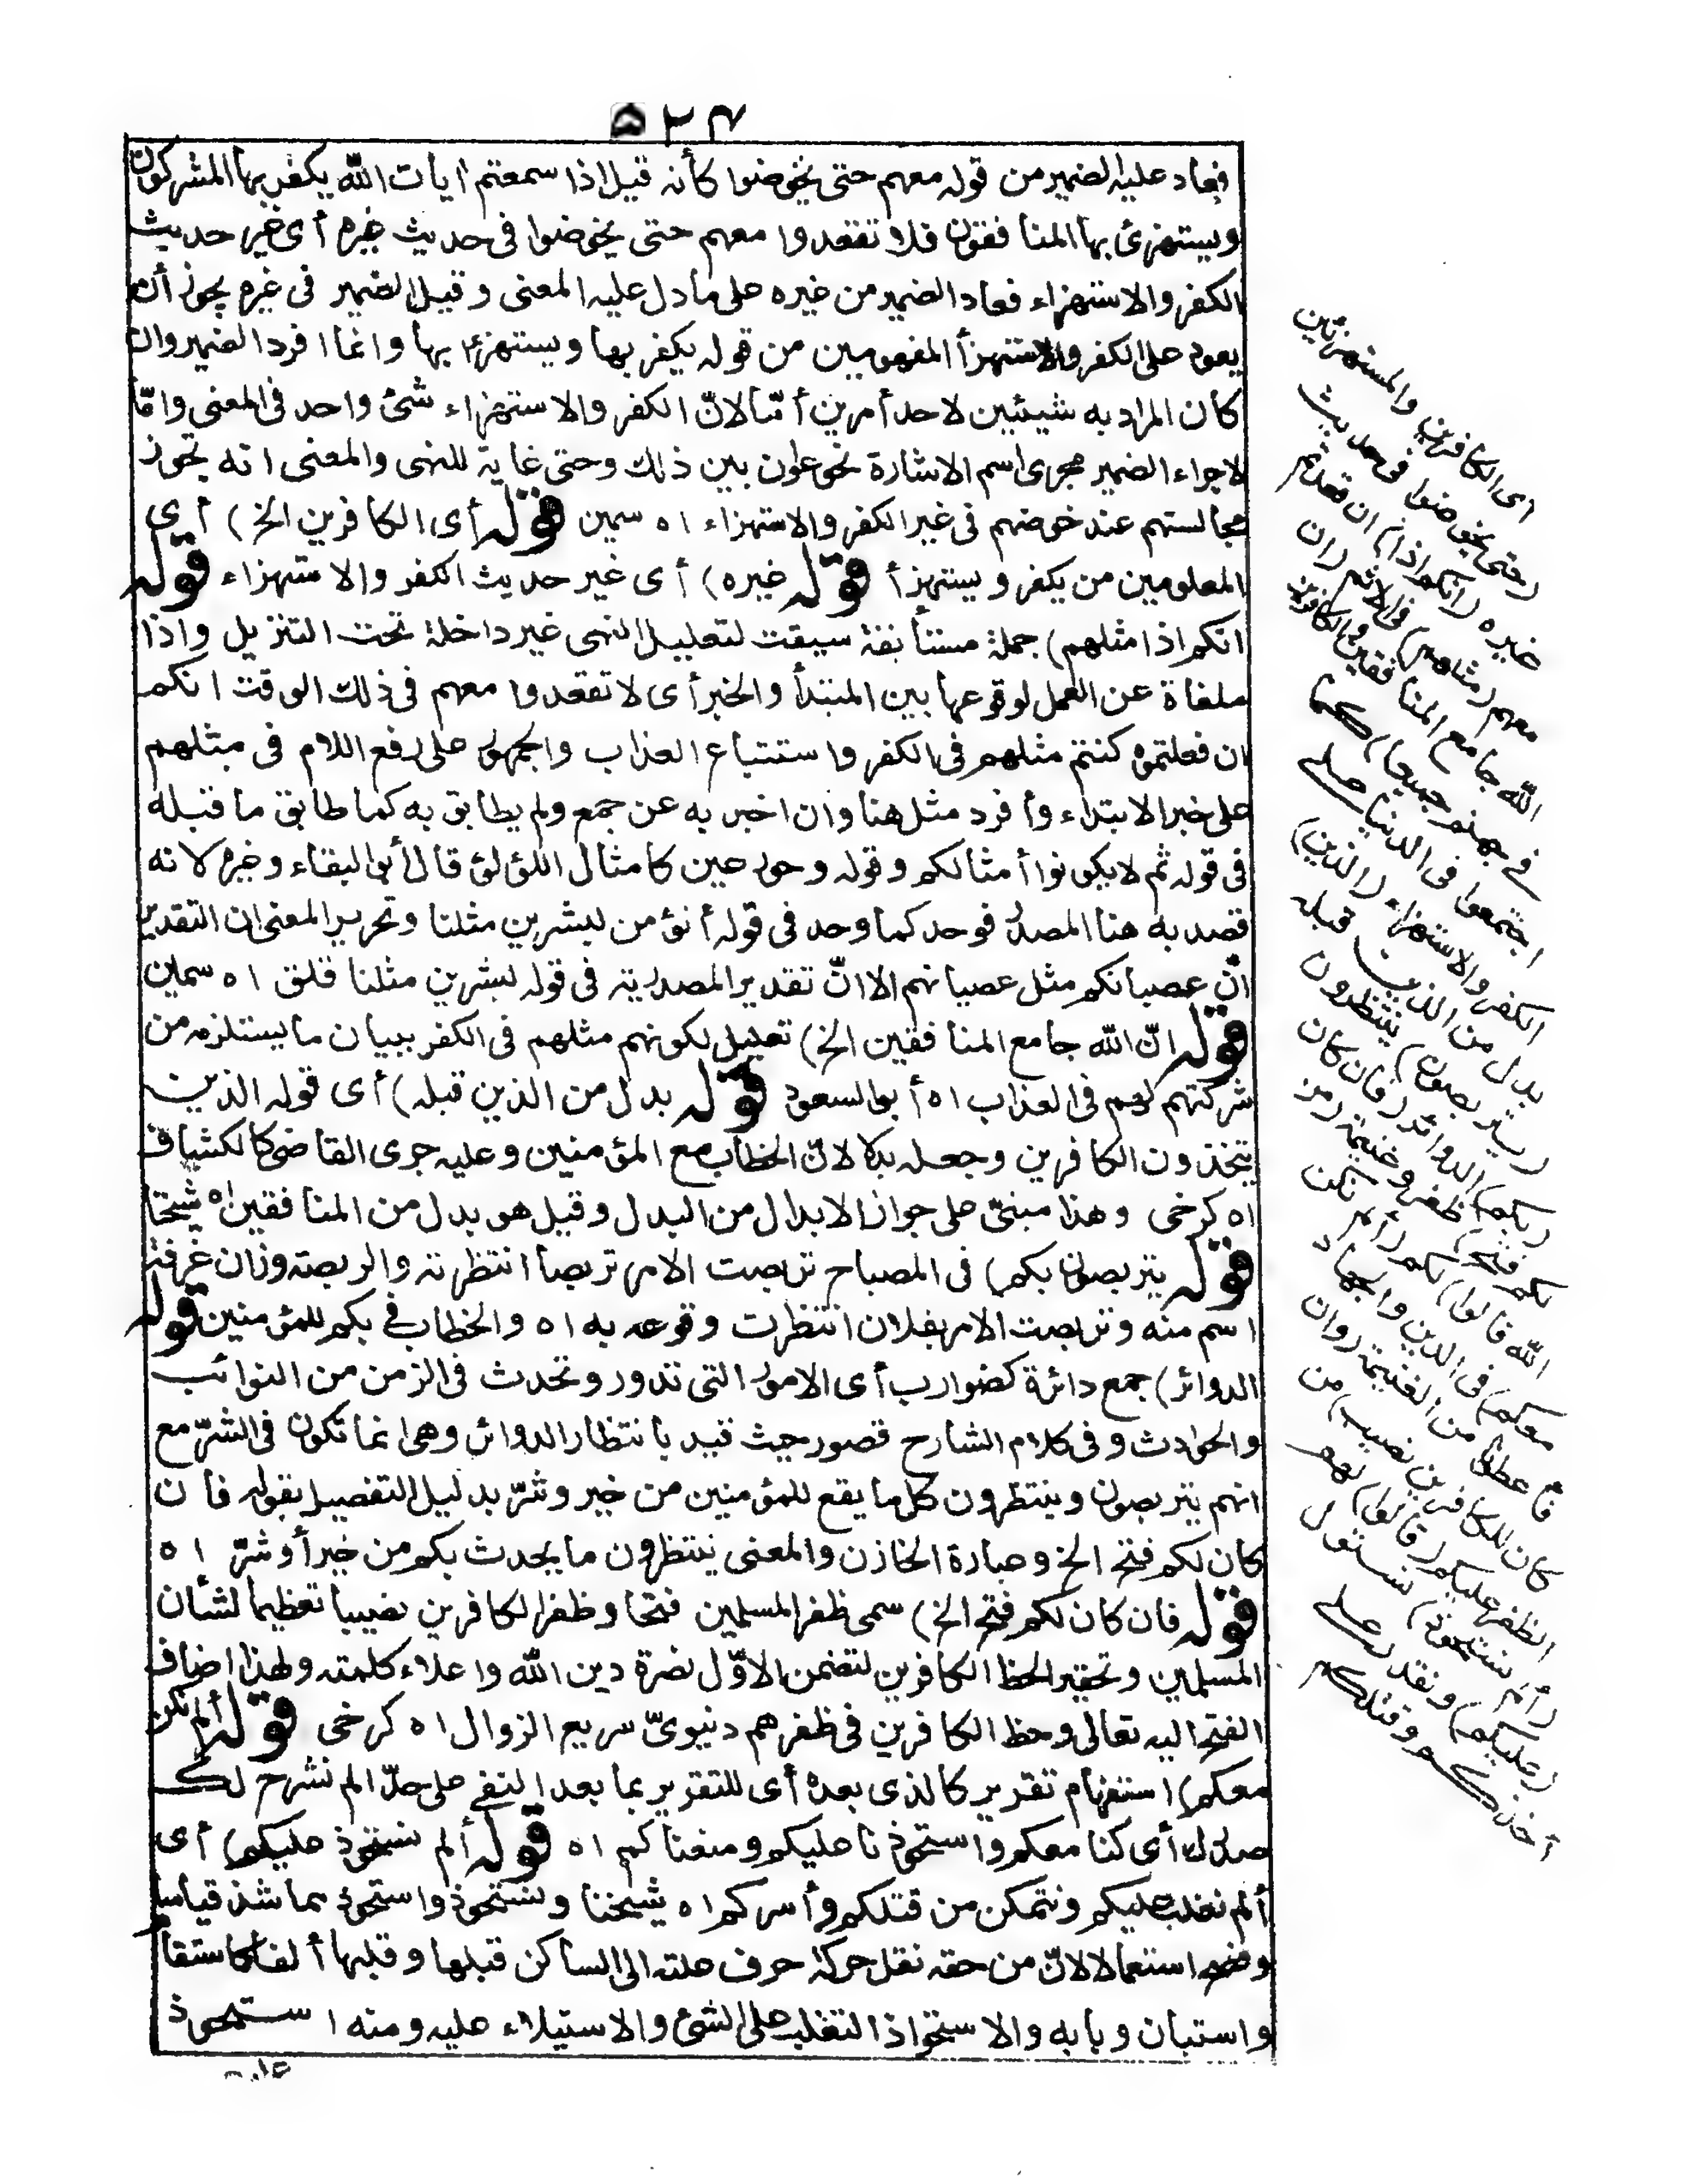 ٥٢٤
فعاد عليه الضمير من قوله معهم حتى يخوضوا كأنه قيل اذا سمعتم ايات الله يكفر بها المشركون
ويستهزئ بها المنافقون فلا تقعدوا معهم حتى يخوضوا فى حديث غيره أى غير حديث
الكفر والاستهزاء فعاد الضمير من غيره على ما دل عليه المعنى وقيل الضمير فى غيره يجوز أن
يعود على الكفر والاستهزأ المفهومين من قوله يكفر بها ويستهزء بها وانما افرد الضمير وان
كان المراد به شيئين لاحد أمرين أمّا لانّ الكفر والاستهزاء شئ واحد فى المعنى وامّا
لاجراء الضمير مجرى اسم الاشارة نحو عوان بين ذلك وحتى غاية للنهى والمعنى انه تجوز
مجالستهم عند خوضهم فى غير الكفر والاستهزاء اه سمين قوله أى الكافرين الخ) أى
المعلومين من يكفر ويستهزأ قوله غيره) أى غير حديث الكفر والاستهزاء قوله
انكم اذا مثلهم) جملة مستأنفة سيقت لتعليل النهى غير داخلة تحت التنزيل واذا
ملغاة عن العمل لوقوعها بين المبتدأ والخبر أى لا تقعدوا معهم فى ذلك الوقت انكم
ان فعلتموه كنتم مثلهم فى الكفر واستتباع العذاب والجمهور على رفع اللام فى مثلهم
على خبر الابتداء وأفرد مثل هنا وان اخبر به عن جمع ولم يطابق به كما طابق ما قبله
فى قوله ثم لا يكونوا أمثالكم وقوله وحور عين كامثال اللؤلؤ قال أبو البقاء وغيره لانه
قصد به هنا المصدر فوحد كما وحد فى قوله أنؤمن لبشرين مثلنا وتحرير المعنى ان التقدير
انّ عصيانكم مثل عصيانهم الا انّ تقدير المصدرية فى قوله لبشرين مثلنا قلق اه سمين
قوله انّ الله جامع المنافقين الخ) تعليل لكونهم مثلهم فى الكفر ببيان ما يستلزمه من
شركتهم لهم فى العذاب اه أبو السعود قوله بدل من الذين قبله) أى قوله الذين
يتخذون الكافرين وجعله بدلا لانّ الخطاب مع المؤمنين وعليه جرى القاضى كالكشاف
اه كرخى وهذا مبنىّ على جواز الابدال من البدل وقيل هو بدل من المنافقين اه شيخنا
قوله يتربصون بكم) فى المصباح تربصت الامر تربصا انتظرته والربصة وزان غرفة
اسم منه وتربصت الامر بفلان انتظرت وقوعه به اه والخطاب فى بكم للمؤمنين قوله
الدوائر) جمع دائرة كضوارب أى الامور التى تدور وتحدث فى الزمن من النوائب
والحوادث وفى كلام الشارح قصور حيث قيد بانتظار الدوائر وهى انما تكون فى الشرّ مع
انهم يتربصون وينتظرون كل ما يقع للمؤمنين من خير وشرّ بدليل التفصيل بقوله فان
كان لكم فتح الخ وعبارة الخازن والمعنى ينتظرون ما يحدث بكم من خير أو شرّ اه
قوله فان كان لكم فتح الخ) سمى ظفر المسلمين فتحا وظفر الكافرين نصيبا تعظيما لشأن
المسلمين وتحقيرا لحظ الكافرين لتضمن الاوّل نصرة دين الله واعلاء كلمته ولهذا اضاف
الفتح اليه تعالى وحظ الكافرين فى ظفرهم دنيوىّ سريع الزوال اه كرخى قوله ألم نكن
معكم) استفهام تقرير كالذى بعده أى للتقرير بما بعد النفى على حدّ الم نشرح لك
صدرك أى كنا معكم واستحوذنا عليكم ومنعناكم اه قوله ألم نستحوذ عليكم) أى
ألم نغلب عليكم ونتمكن من قتلكم وأسركم اه شيخنا ونستحوذ واستحوذ مما شذ قياسا
وفصح استعمالا لانّ من حقه نقل حركة حرف علته الى الساكن قبلها وقلبها ألفا كاستقام
واستبان وبابه والاستحواذ التغلب على الشئ والاستيلاء عليه ومنه استحوذ
اى الكافرين والمستهزئين
(حتى يخوضوا فى حديث
غيره (انكم اذا) ان قعدتم
معهم (مثلهم) فى الاثم (ان
الله جامع المنافقين والكافرين
فى جهنم جميعا) كما
اجتمعوا فى الدنيا على
الكفر والاستهزاء (الذين)
بدل من الذين قبله
(يتربصون) ينتظرون
(بكم) الدوائر (فان كان
لكم فتح) ظفر وغنيمة (من
الله قالوا) لكم (ألم نكن
معكم) فى الدين والجهاد
فاعطونا من الغنيمة (وان
كان للكافرين نصيب) من
الظفر عليكم (قالوا) لهم
(ألم نستحوذ) نستول
(عليكم) ونقدر على
أخذكم وقتلكم